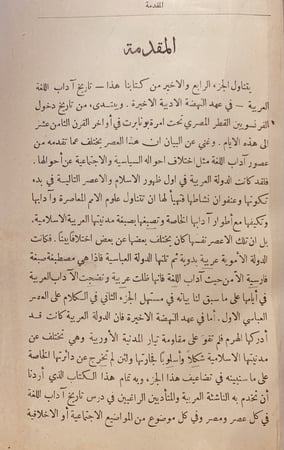 المقدمة
المقدمة
يتناول الجزء الرابع والاخير من كتابنا هذا — تاريخ آداب اللغة
العربية — في عهد النهضة الادبية الاخيرة . ويبتدىء، من تاريخ دخول
الفرنسويين القطر المصري تحت امرة بونابرت في أواخر القرن الثامن عشر
الى هذه الايام . وغني عن البيان ان هذا العصر يختلف عما تقدمه من
عصور آداب اللغة مثل اختلاف احواله السياسية والاجتماعية عن أحوالها .
فقد كانت الدولة العربية في اول ظهور الاسلام والاعصر التالية في بدء
تكونها وعنفوان نشاطها فتهيأ لها ان تتناول علوم الامم المعاصرة وآدابها
وتكيفها مع أطوار آدابها الخاصة وتصبغها بصبغة مدنيتها العربية الاسلامية.
بل ان تلك الاعصر نفسها كان يختلف بعضها عن بعض اختلافا بينًا . فكانت
الدولة الأموية عربية بدوية ثم تلتها الدولة العباسية فاذا هي مصطبغة صبغة
فارسية الا من حيث آداب اللغة فانها ظلت عربية ونضجت الآداب العربية
في أيامها على ما سبق لنا بيانه في مستهل الجزء الثاني في الكلام على العصر
العباسي الاول . أما في عهد النهضة الاخيرة فان الدولة العربية كانت قد
أدركها الهرم فلم تقو على مقاومة تيار المدنية الأوربية وهي تختلف عن
مدنيتها الاسلامية شكلاً وأسلوباً فجارتها وان لم تخرج عن دائرتها الخاصة
على ما سنبينه في تضاعيف هذا الجزء، وبه تمام هذا الكتاب الذي أردنا
أن نخدم به الناشئة العربية والمتأدبين الراغبين في درس تاريخ آداب اللغة
في كل عصر ومصر وفي كل موضوع من المواضيع الاجتماعية أو الاخلاقية